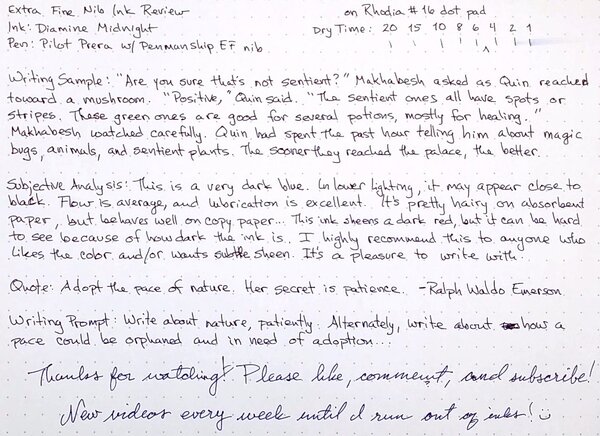 Extra Fine Nib Ink Review on Rhodia #16 dot pad
Ink: Diamine Midnight Dry Time: 20 15 10 8 6 4 2 1
Pen: Pilot Prera w/ Penmanship EF nib
Writing Sample: "Are you sure that's not sentient?" Makhabesh asked as Quin reached
toward a mushroom. "Positive," Quin said. "The sentient ones all have spots or
stripes. These green ones are good for several potions, mostly for healing."
Makhabesh watched carefully. Quin had spent the past hour telling him about magic
bugs, animals, and sentient plants. The sooner they reached the palace, the better.
Subjective Analysis: This is a very dark blue. In lower lighting, it may appear close to
black. Flow is average, and lubrication is excellent. It's pretty hairy on absorbent
paper, but behaves well on copy paper... This ink sheens a dark red, but it can be hard
to see because of how dark the ink is. I highly recommend this to anyone who
likes the color and/or wants subtle sheen. It's a pleasure to write with.
Quote: Adopt the pace of nature. Her secret is patience. -Ralph Waldo Emerson
Writing Prompt: Write about nature, patiently. Alternately, write about how a
pace could be orphaned and in need of adoption...
Thanks for watching! Please like, comment, and subscribe!
New videos every week until I run out of inks!